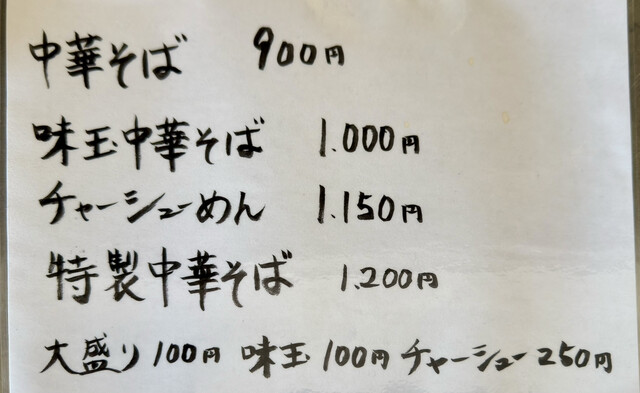 中華そば 900円
味玉中華そば 1.000円
チャーシューめん 1.150円
特製中華そば 1.200円
大盛り100円 味玉100円 チャーシュー250円